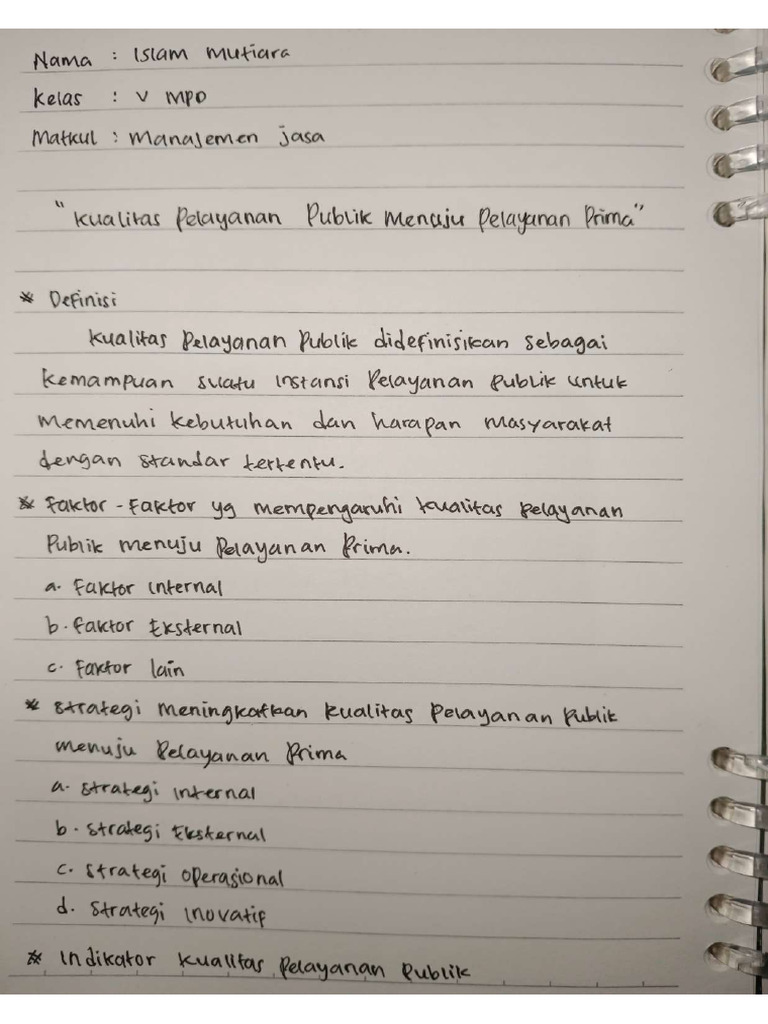 Nama : Islam Mutiara
Kelas : V MPD
Matkul : Manajemen jasa
"Kualitas Pelayanan Publik Menuju Pelayanan Prima"
* Definisi
Kualitas Pelayanan Publik didefinisikan sebagai
kemampuan suatu instansi Pelayanan Publik untuk
memenuhi kebutuhan dan harapan Masyarakat
dengan standar tertentu.
* Faktor-Faktor yg mempengaruhi kualitas pelayanan
Publik menuju Pelayanan Prima.
a. Faktor internal
b. Faktor Eksternal
c. Faktor lain
* Strategi meningkatkan kualitas Pelayanan Publik
menuju Pelayanan Prima
a. Strategi internal
b. Strategi Eksternal
c. Strategi Operasional
d. Strategi Inovatif
* Indikator Kualitas Pelayanan Publik